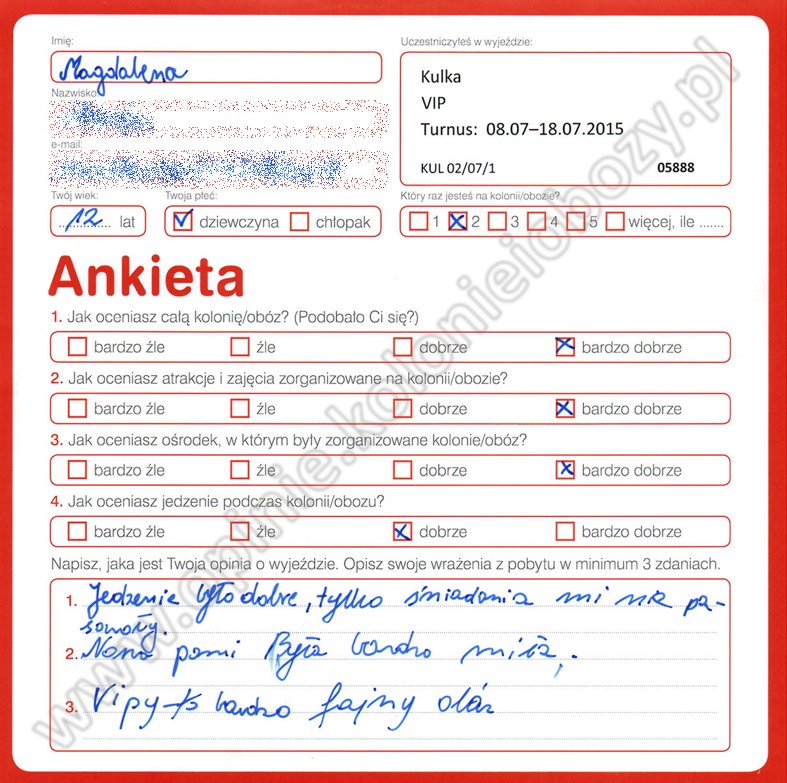 Imię:
Magdalena
Nazwisko
e-mail:
Uczestniczyłeś w wyjeździe:
Kulka
VIP
Turnus: 08.07–18.07.2015
KUL 02/07/1 05888
Twój wiek:
12 lat
Twoja płeć:
dziewczyna chłopak
Który raz jesteś na kolonii/obozie?
1 2 3 4 5 więcej, ile .......
Ankieta
1. Jak oceniasz całą kolonię/obóz? (Podobało Ci się?)
bardzo źle źle dobrze bardzo dobrze
2. Jak oceniasz atrakcje i zajęcia zorganizowane na kolonii/obozie?
bardzo źle źle dobrze bardzo dobrze
3. Jak oceniasz ośrodek, w którym były zorganizowane kolonie/obóz?
bardzo źle źle dobrze bardzo dobrze
4. Jak oceniasz jedzenie podczas kolonii/obozu?
bardzo źle źle dobrze bardzo dobrze
Napisz, jaka jest Twoja opinia o wyjeździe. Opisz swoje wrażenia z pobytu w minimum 3 zdaniach.
1. Jedzenie było dobre, tylko śniadania mi nie pa-
sowały.
2. pani Była bardzo miła.
3. Vipy to bardzo fajny obóz
www.opinie.kolonieiobozy.pl